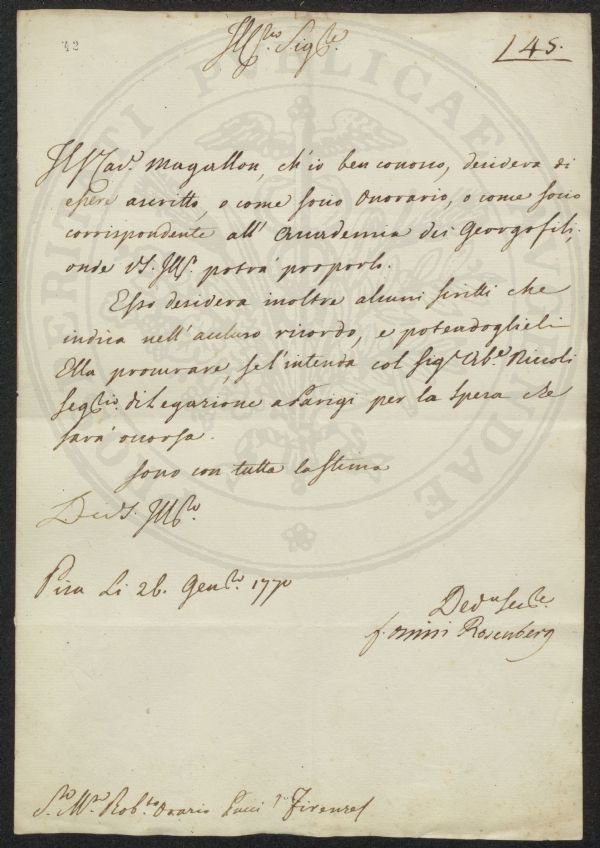 42
Ill.mo Sig.re
145.
Il S. Cav.r Magallon, ch'io ben conosco, desidera di
essere ascritto, o come socio Onorario, o come socio
corrispondente all' Accademia dei Georgofili,
onde V.S. Ill. potrà proporlo.
Esso desidera inoltre alcuni scritti che
indica nell' accluso ricordo, e potendoglieli
Ella procurare, se l'intenda col Sig.r Ab.e Niccoli
Seg.rio di Legazione a Parigi per la spesa che
sarà occorsa.
Sono con tutta la stima
Di V.S. Ill.ma
Pisa Li 26. Gen.ro 1770
Dev.mo Ser.re
f. Orsini Rosenberg
S.re M.se Rob.to Orazio Pucci Firenze
BENEMERITI PUBLICAE